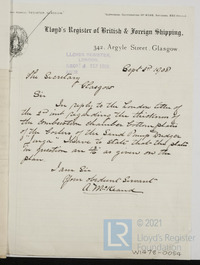 Lloyd's Register of British & Foreign Shipping,
342, Argyle Street, Glasgow.
Sept 3rd 1908
The Secretary
Glasgow
Sir
In reply to the London letter of
the 2nd inst regarding the thickness of
the Combustion chamber bottom plates
of the Boilers of the Sand Pump Dredger
I have to state that the plates
in question are as given on the
plan
I am Sir
Your obedient Servant
© 2021
Lloyd's Register
Foundation